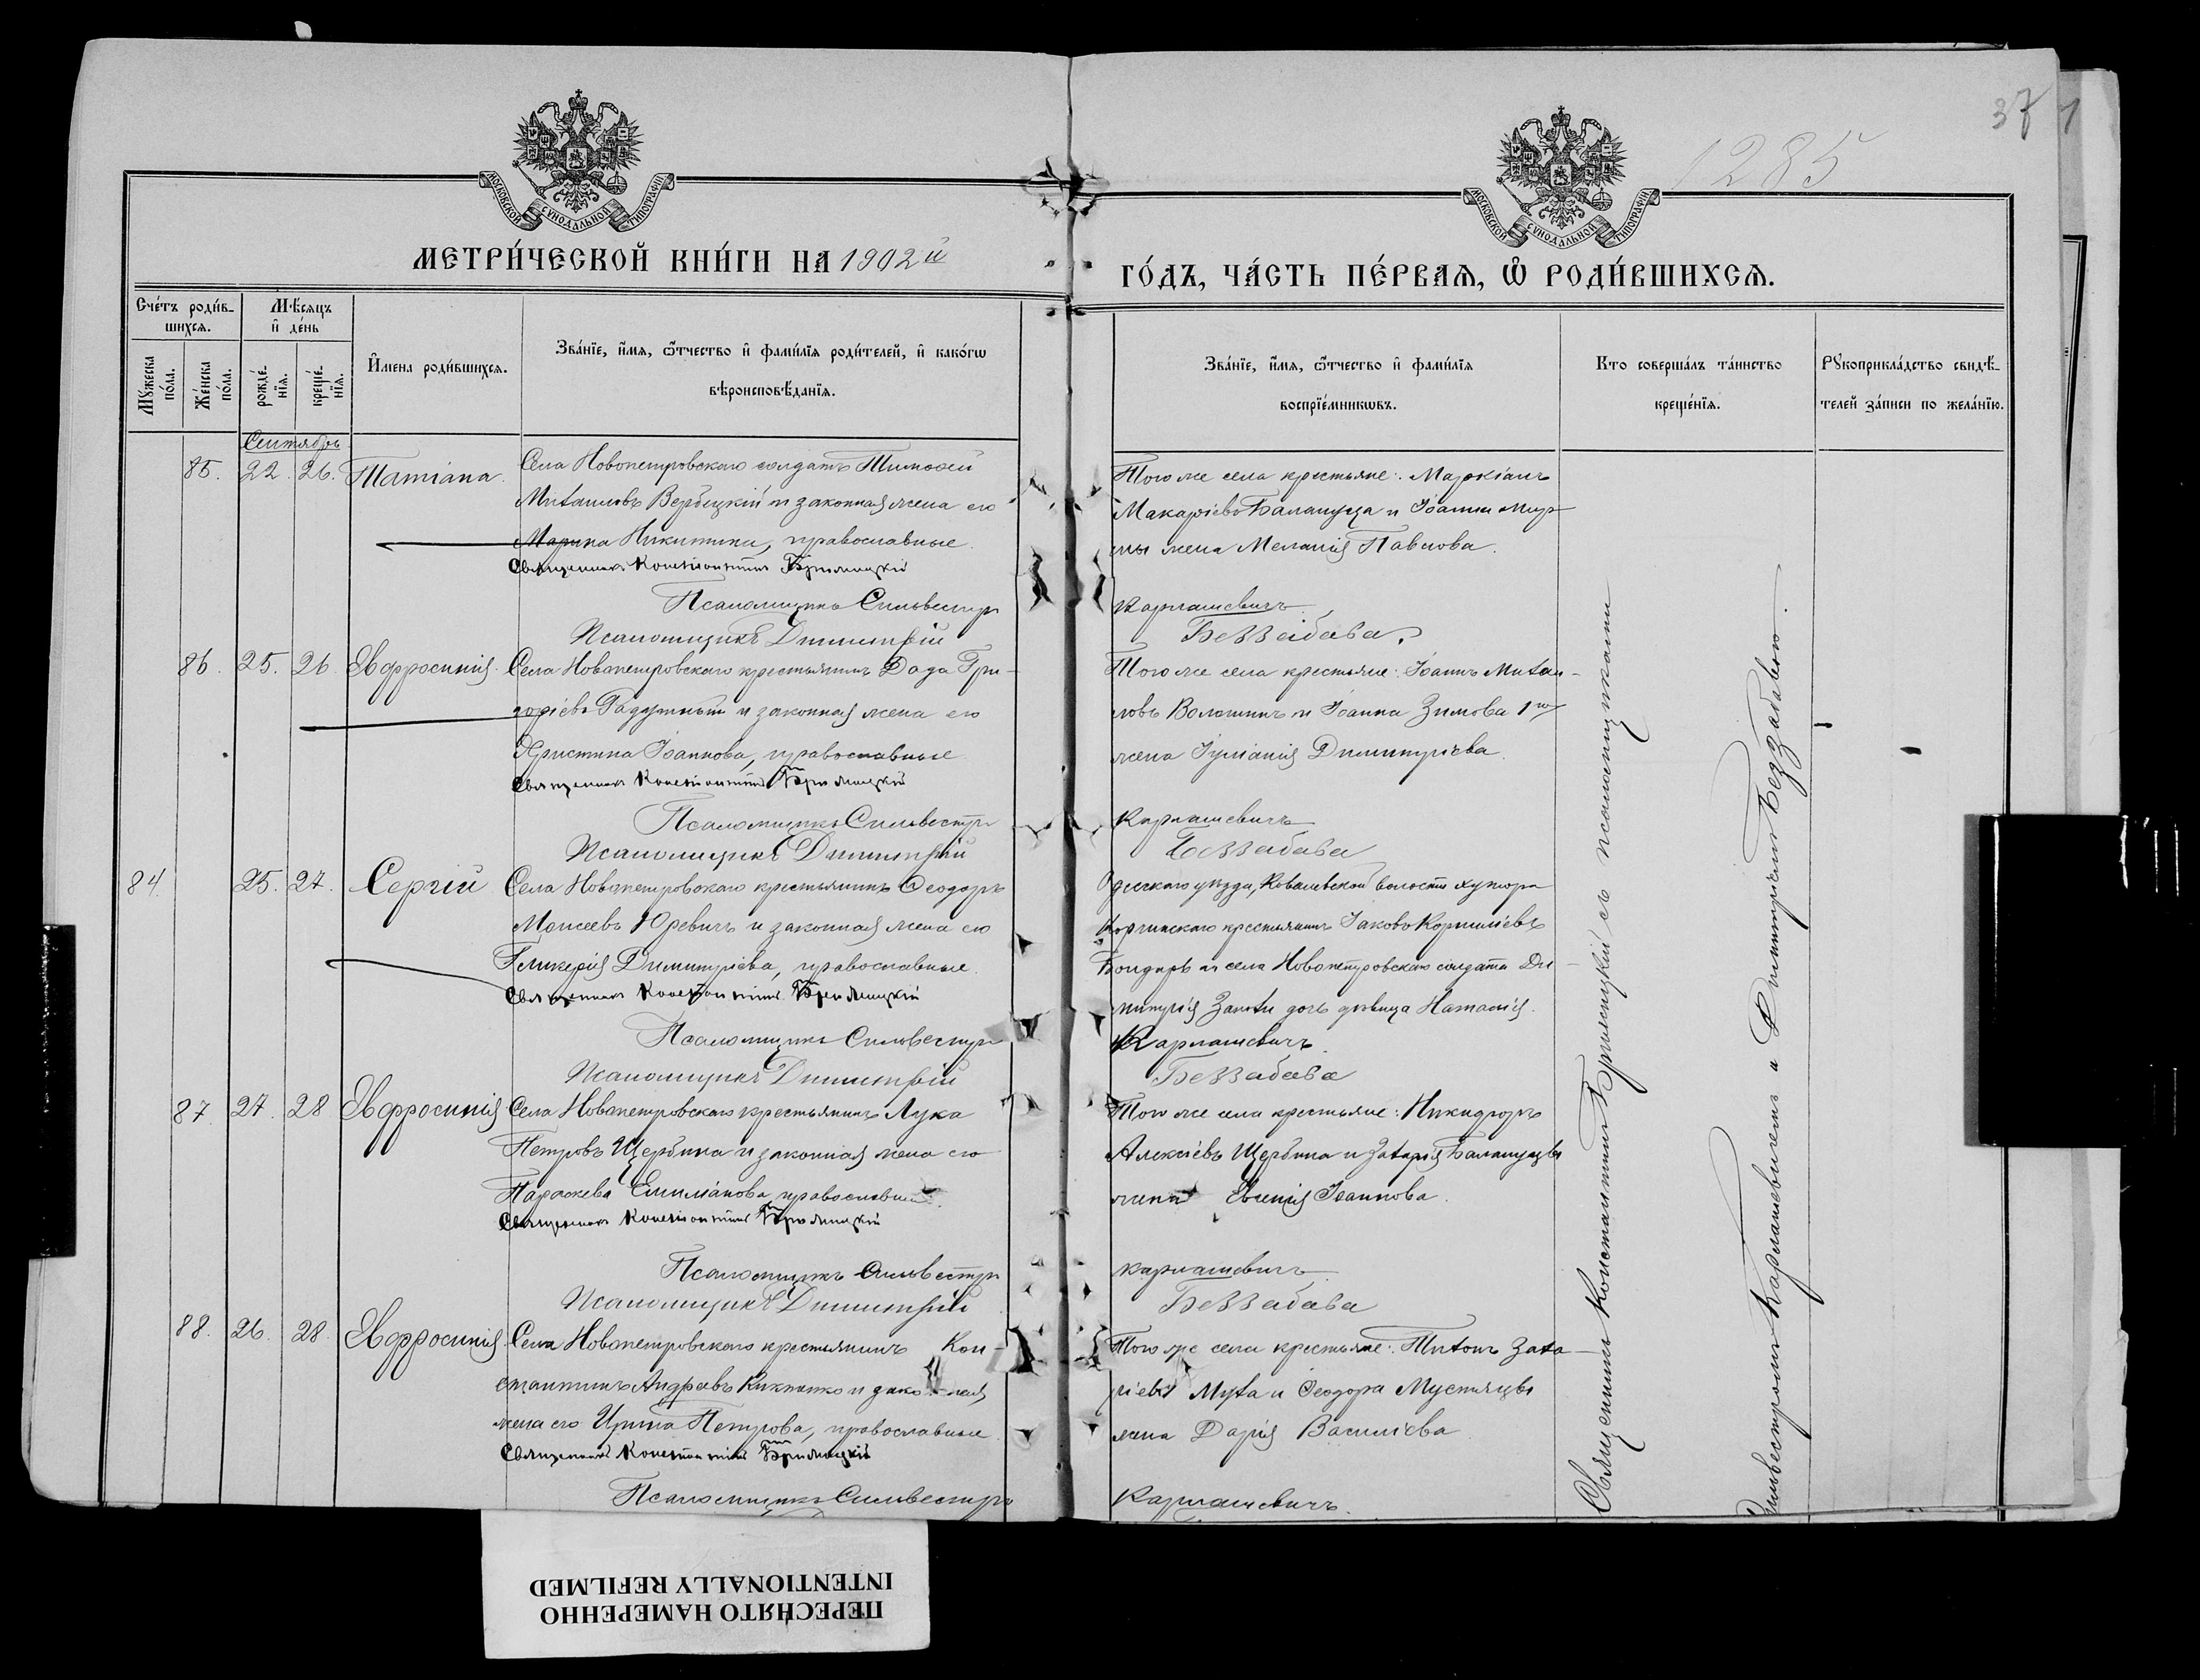 37
1285
МОСКОВСКОЙ СѴНОДАЛЬНОЙ ТИПОГРАФІИ
МОСКОВСКОЙ СѴНОДАЛЬНОЙ ТИПОГРАФІИ
МЕТРИ́ЧЕСКОЙ КНИ́ГИ НА 1902й
ГО́ДЪ, ЧА́СТЬ ПЕ́РВАЯ, Ѡ РОДИ́ВШИХСЯ.
Сче́тъ роди́в-
шихся.
Мѣ́сяцъ
и де́нь
Му́жеска по́ла.
Же́нска по́ла.
рожде́нїя.
креще́нїя.
И́мена роди́вшихся.
Зва́нїе, и́мя, ѻ́тчество и фами́лїя роди́телей, и како́гѡ
вѣроисповѣ́данїя.
Зва́нїе, и́мя, ѻ́тчество и фами́лїя
воспрїе́мникѡвъ.
Кто соверша́лъ та́инство
креще́нїя.
Рукоприкла́дство свидѣ́-
телей за́писи по жела́нїю.
Сентябрь
85. 22. 26. Татіана.
Села Новопетровскаго солдатъ Тимоѳей
Михаиловъ Вербицкій и законная жена его
Марина Никитина, православные.
Священникъ Константинъ
Псаломщикъ Сильвестръ
Псаломщикъ Димитрій
Того же села крестьяне: Маркіанъ
Макаріевъ Балануца и Іоанна
жена Меланія Павлова.
Карпашевичъ
Беззабава.
86. 25. 26. Евфросинія.
Села Новопетровскаго крестьянинъ Гри-
горіевъ и законная жена его
Христина Іоаннова, православные.
Священникъ Константинъ
Псаломщикъ Сильвестръ
Псаломщикъ Димитрій
Того же села крестьяне: Іоаннъ Михаи-
ловъ Волошинъ и Іоанна Зимова 1го
жена Іуліанія Димитріева.
Карпашевичъ
Беззабава
84. 25. 27. Сергій
Села Новопетровскаго крестьянинъ Ѳеодоръ
Моисеевъ Юревичъ и законная жена его
Гликерія Димитріева, православные.
Священникъ Константинъ
Псаломщикъ Сильвестръ
Псаломщикъ Димитрій
Одесскаго уѣзда, Ковалевской волости хутора
крестьянинъ Іаковъ Корниліевъ
Бондарь и села Новопетровскаго солдата Ди-
митрія дочь дѣвица Наталія.
Карпашевичъ
Беззабава
87. 27. 28 Евфросинія
Села Новопетровскаго крестьянинъ Лука
Петровъ Щербина и законная жена его
Параскева Емиліанова, православные.
Священникъ Константинъ
Псаломщикъ Сильвестръ
Псаломщикъ Димитрій
Того же села крестьяне: Никифоръ
Алексіевъ Щербина и Захарія Балануцы
жена Евгенія Іоаннова.
Карпашевичъ
Беззабава
88. 26. 28. Евфросинія.
Села Новопетровскаго крестьянинъ Кон-
стантинъ Андреевъ и законная
жена его Ирина Петрова, православные
Священникъ Константинъ
Псаломщикъ Сильвестръ
Того же села крестьяне: Титъ Заха-
ріевъ Муха и Ѳеодора
жена Дарія Василіева
Карпашевичъ.
Священникъ Константинъ съ псаломщиками
Сильвестромъ Карпашевичемъ и Димитріемъ Беззабавою.
ПЕРЕСНЯТО НАМЕРЕННО
INTENTIONALLY REFILMED